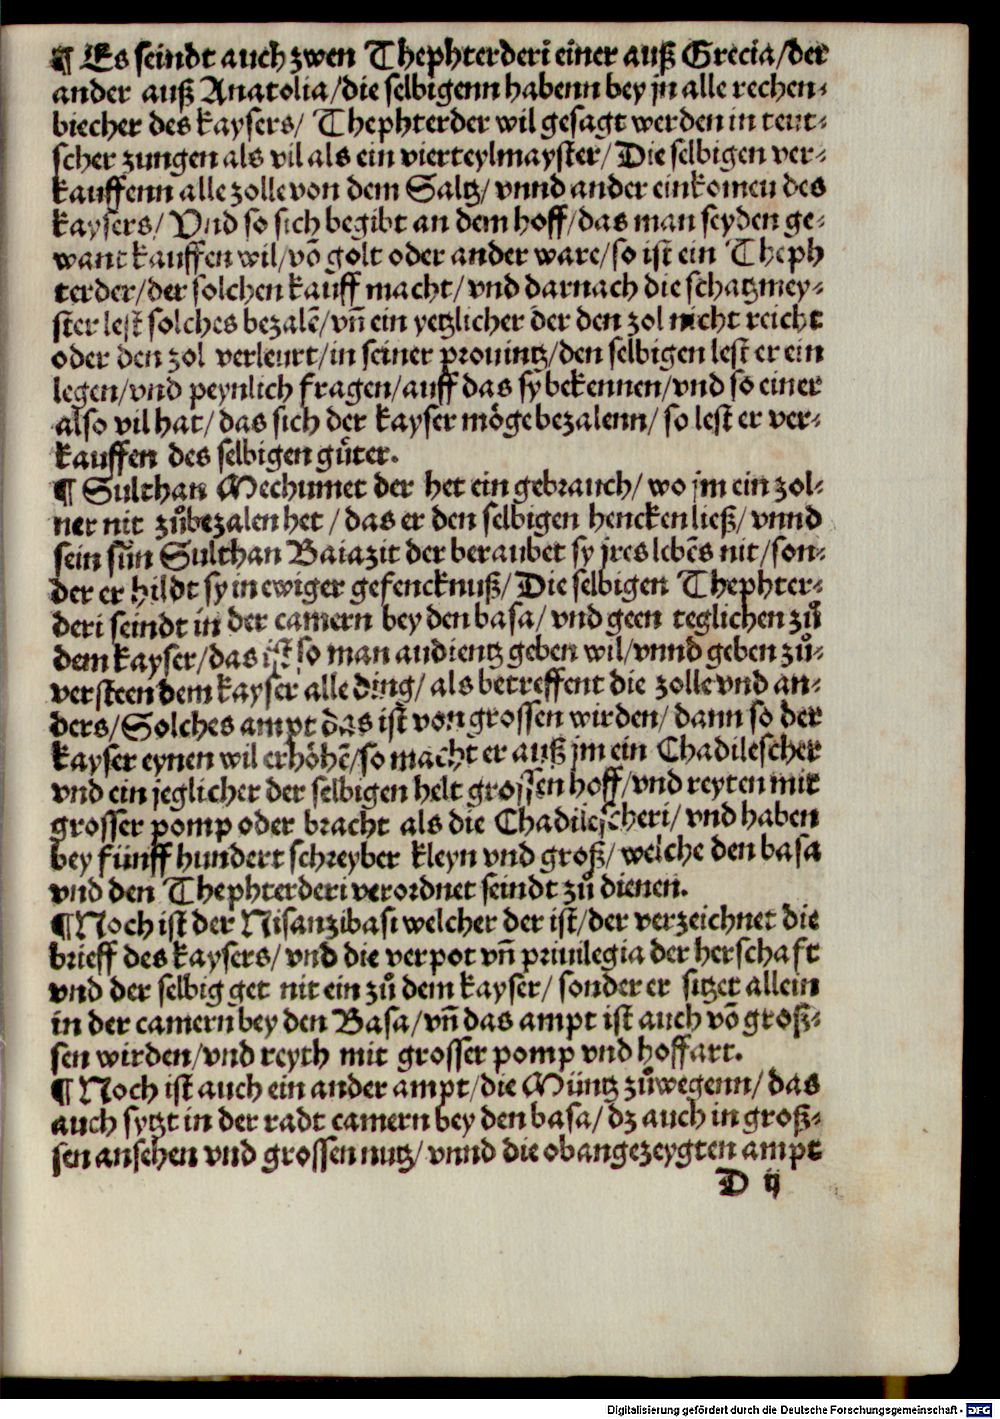 ¶ Es seindt auch zwen Thephterderi einer auß Grecia/der
ander auß Anatolia/die selbigenn habenn bey jn alle rechen⸗
biecher des kaysers/ Thephterder wil gesagt werden in teut⸗
scher zungen als vil als ein vierteylmayster/ Die selbigen ver⸗
kauffenn alle zolle von dem Saltz/ vnnd ander einkomen des
kaysers/ Vnd so sich begibt an dem hoff/das man seyden ge⸗
want kauffen wil/võ golt oder ander ware/so ist ein Theph
terder/der solchen kauff macht/vnd darnach die schatzmey⸗
ster lest solches bezalẽ/vñ ein yetzlicher der den zol nicht reicht
oder den zol verleurt/in seiner prouintz/den selbigen lest er ein
legen/vnd peynlich fragen/auff das sy bekennen/vnd so einer
also vil hat/das sich der kayser möge bezalenn/ so lest er ver⸗
kauffen des selbigen gůter.
¶ Sulthan Mechumet der het ein gebrauch/ wo jm ein zol⸗
ner nit zůbezalen het / das er den selbigen hencken ließ/ vnnd
sein sün Sulthan Baiazit der beraubet sy jres lebẽs nit/son⸗
der er hildt sy in ewiger gefencknuß/ Die selbigen Thephter⸗
deri seindt in der camern bey den basa/ vnd geen teglichen zů
dem kayser/das ist so man audientz geben wil/vnnd geben zů⸗
versteen dem kayser alle ding/ als betreffent die zolle vnd an⸗
ders/Solches ampt das ist von grossen wirden/ dann so der
kayser eynen wil erhöhẽ/so macht er auß jm ein Chadilescher
vnd ein jeglicher der selbigen helt grossen hoff/vnd reyten mit
grosser pomp oder bracht als die Chadilescheri/ vnd haben
bey fünff hundert schreyber kleyn vnd groß/ welche den basa
vnd den Thephterderi verordnet seindt zů dienen.
¶ Noch ist der Nisanzibasi welcher der ist/der verzeichnet die
brieff des kaysers/ vnd die verpot vñ priuilegia der herschaft
vnd der selbig get nit ein zů dem kayser/ sonder er sitzet allein
in der camern bey den Basa/vñ das ampt ist auch võ groß⸗
sen wirden/vnd reyth mit grosser pomp vnd hoffart.
¶ Noch ist auch ein ander ampt/die Müntz zůwegenn/ das
auch sytzt in der radt camern bey den basa/dz auch in groß⸗
sen ansehen vnd grossen nutz/ vnnd die obangezeygten ampt
D ij
Digitalisierung gefördert durch die Deutsche Forschungsgemeinschaft - DFG